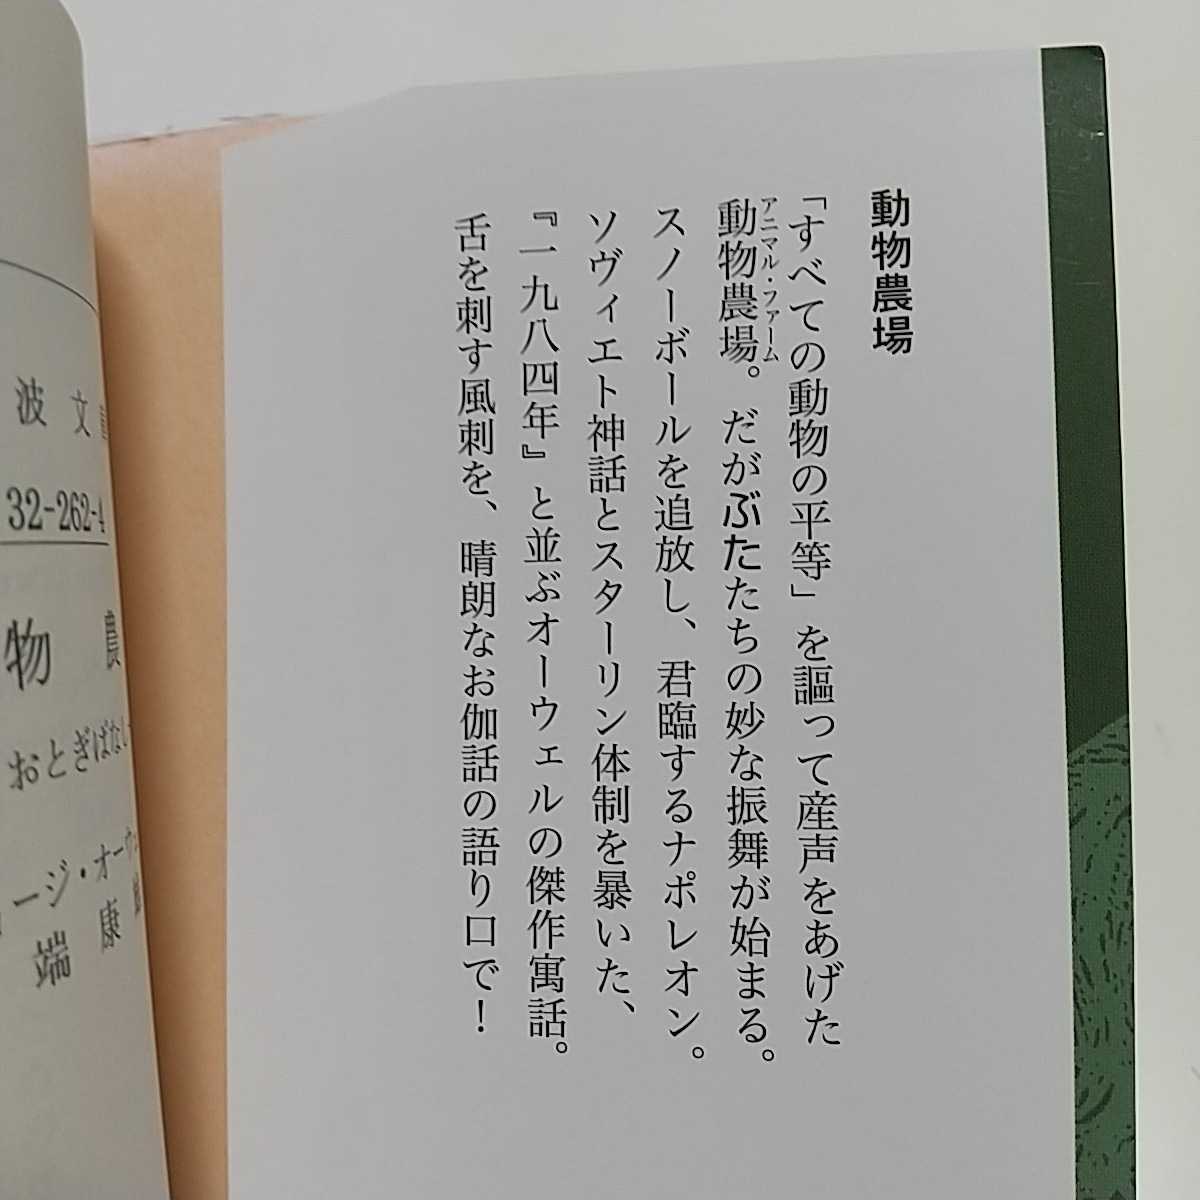 動物農場
「すべての動物の平等」を謳って産声をあげた
アニマル・ファーム
動物農場。だがぶたたちの妙な振舞が始まる。
スノーボールを追放し、君臨するナポレオン。
ソヴィエト神話とスターリン体制を暴いた、
『一九八四年』と並ぶオーウェルの傑作寓話。
舌を刺す風刺を、晴朗なお伽話の語り口で！
波文
32-262-4
物農
おとぎばなし
ージ・オーウ
端康